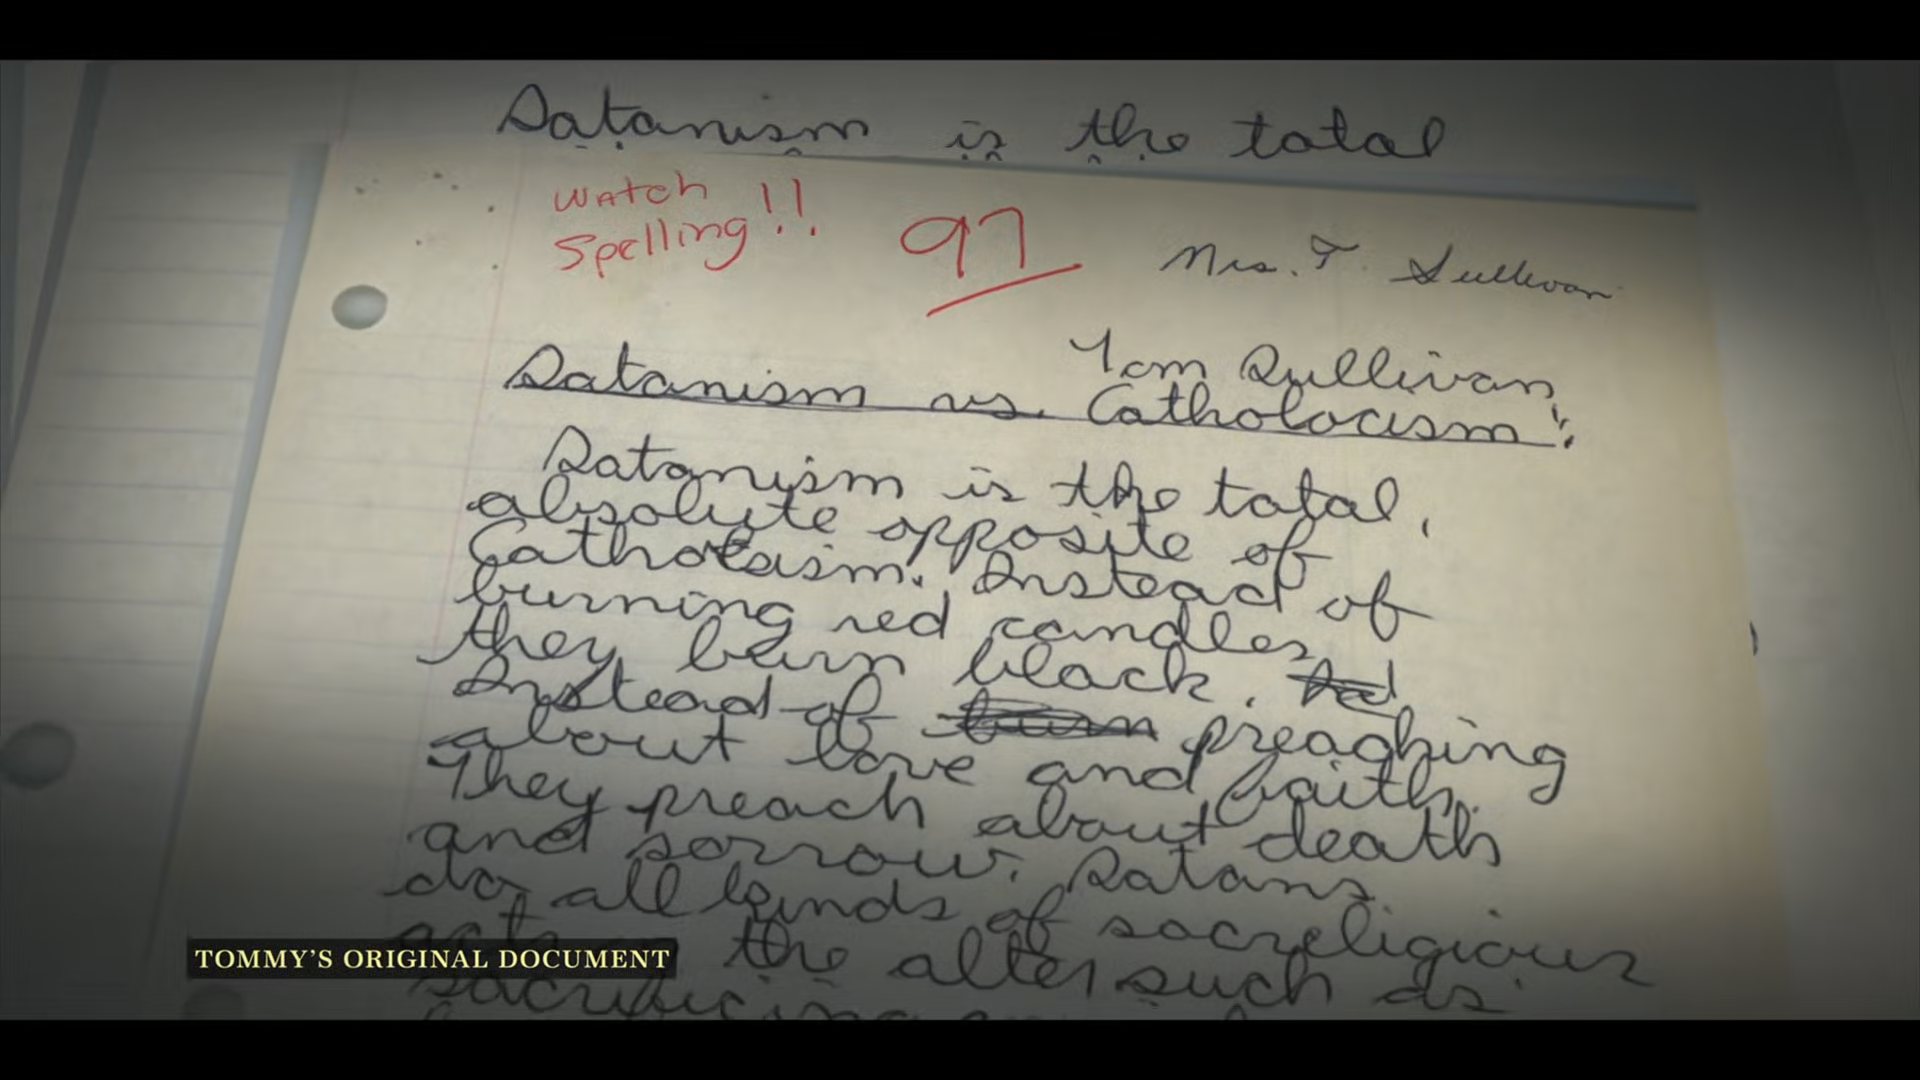 Satanism is the total
Watch
Spelling!!
97
Mrs. T. Sullivan
Tom Sullivan
Satanism vs. Catholocism:
Satanism is the total,
absolute opposite of
Catholism. Instead of
burning red candles
they burn black.
Instead of burn preaching
about love and faith.
They preach about death
and sorrow. Satans
do all kinds of socreligious
the alter such as
sacrificing
TOMMY'S ORIGINAL DOCUMENT